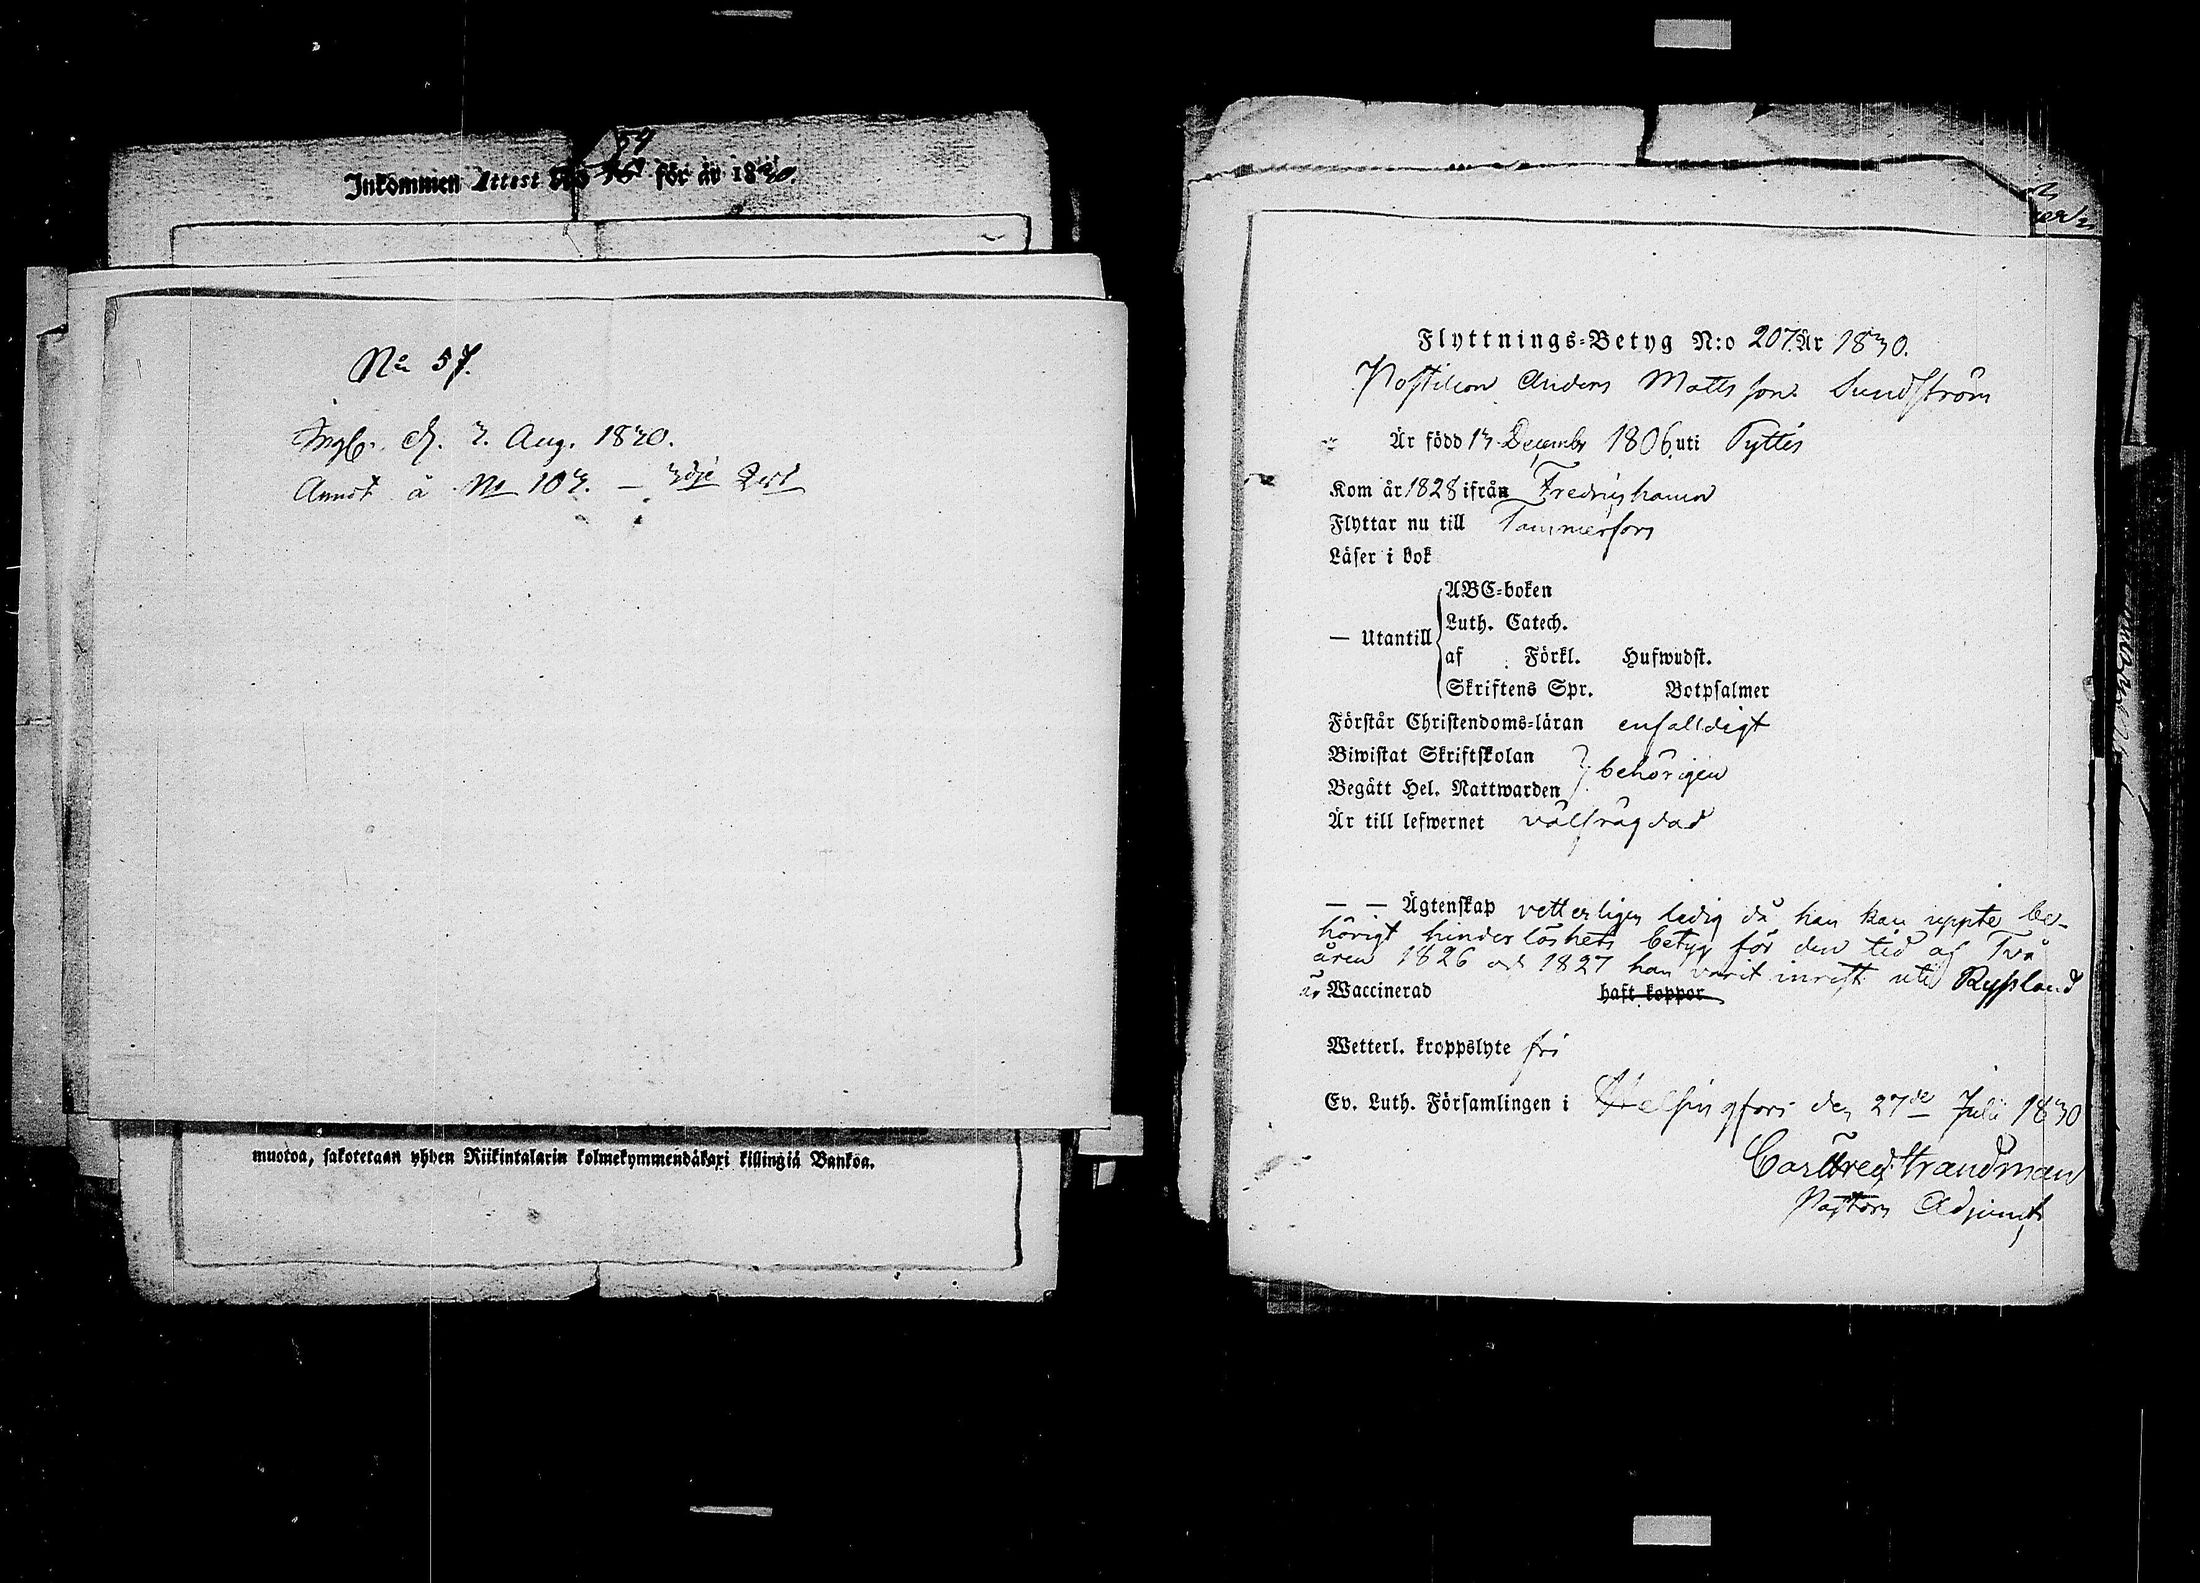 Inkommen Attest No för år 1830.
No 57.
Ingb. d. 3. Aug. 1830.
Annot å No 103. — 3dje Qvrt
muotoa, sakotetaan yhden Riikintalarin kolmekymmendäkaxi killingiä Bankoa.
Flyttnings-Betyg N:o 207 År 1830.
Postilion Anders Matts son Sundström
Är född 13 Decembr 1806 uti Pyttis
Kom år 1828 ifrån Fredrigshamn
Flyttar nu till Tammerfors
Läser i bok
ABC-boken
Luth. Catech.
— Utantill
af Förkl. Hufwudst.
Skriftens Spr. Botpsalmer
Förstår Christendoms-läran enfalldigt
Biwistat Skriftskolan
behörigen
Begått Hel. Nattwarden
Är till lefwernet välfrägdad
— — Ägtenskap vetterligen ledig då han kan uppte be-
hörigt hinderlöshets betyg för den tid af Två
åren 1826 och 1827 han varit inrest uti Ryssland
är Waccinerad haft koppor
Wetterl. kroppslyte fri
Ev. Luth. Församlingen i Helsingfors den 27de Julii 1830
Carl Fred. Strandman
Pastors Adjunct